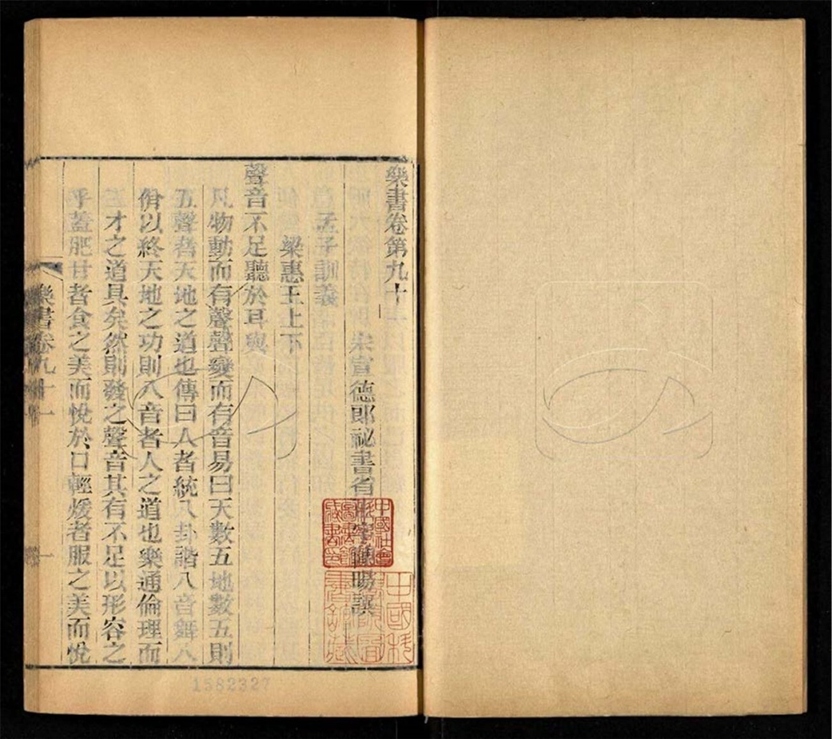 樂書卷第九十一
宋宣德郎祕書省正字陳暘撰
孟子訓義
梁惠王上下
聲音不足聽於耳與
凡物動而有聲聲變而有音易曰天數五地數五則
五聲者天地之道也傳曰人者統八卦諧八音舞八
佾以終天地之功則八音者人之道也樂通倫理而
三才之道具矣然則發之聲音其有不足以形容之
乎蓋肥甘者食之美而悅於口輕煖者服之美而悅
樂書卷九十一
一
中國社會
中國科
1582327